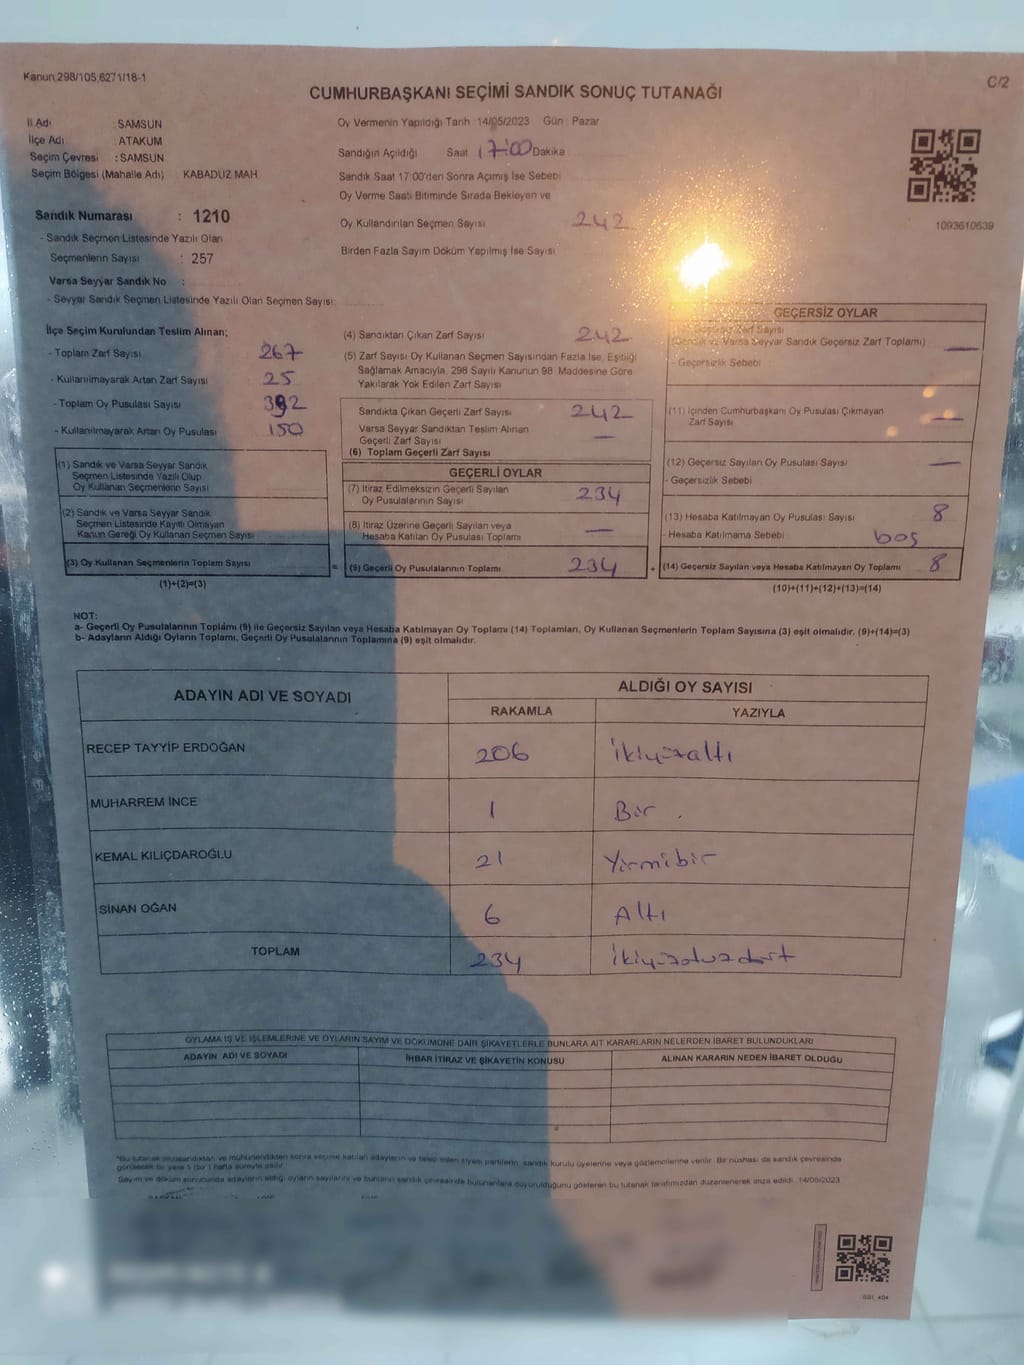 Kanun;298/105;6271/18-1
C/2
CUMHURBAŞKANI SEÇİMİ SANDIK SONUÇ TUTANAĞI
İl Adı : SAMSUN
İlçe Adı : ATAKUM
Seçim Çevresi : SAMSUN
Seçim Bölgesi (Mahalle Adı) KABADUZ MAH.
Sandık Numarası : 1210
- Sandık Seçmen Listesinde Yazılı Olan
Seçmenlerin Sayısı : 257
Varsa Seyyar Sandık No :
- Seyyar Sandık Seçmen Listesinde Yazılı Olan Seçmen Sayısı:
Oy Vermenin Yapıldığı Tarih :14/05/2023 Gün : Pazar
Sandığın Açıldığı Saat 17:00 Dakika
Sandık Saat 17:00'den Sonra Açımış İse Sebebi
Oy Verme Saati Bitiminde Sırada Bekleyen ve
Oy Kullandırılan Seçmen Sayısı 242
Birden Fazla Sayım Döküm Yapılmış İse Sayısı
1093610639
İlçe Seçim Kurulundan Teslim Alınan;
- Toplam Zarf Sayısı 267
- Kullanılmayarak Artan Zarf Sayısı 25
- Toplam Oy Pusulası Sayısı 392
- Kullanılmayarak Artan Oy Pusulası 150
(1) Sandık ve Varsa Seyyar Sandık
Seçmen Listesinde Yazılı Olup
Oy Kullanan Seçmenlerin Sayısı
(2) Sandık ve Varsa Seyyar Sandık
Seçmen Listesinde Kayıtlı Olmayan
Kanun Gereği Oy Kullanan Seçmen Sayısı
(3) Oy Kullanan Seçmenlerin Toplam Sayısı =
(1)+(2)=(3)
(4) Sandıktan Çıkan Zarf Sayısı 242
(5) Zarf Sayısı Oy Kullanan Seçmen Sayısından Fazla İse, Eşitliği
Sağlamak Amacıyla, 298 Sayılı Kanunun 98. Maddesine Göre
Yakılarak Yok Edilen Zarf Sayısı
Sandıkta Çıkan Geçerli Zarf Sayısı 242
Varsa Seyyar Sandıktan Teslim Alınan
Geçerli Zarf Sayısı —
(6) Toplam Geçerli Zarf Sayısı
GEÇERLİ OYLAR
(7) İtiraz Edilmeksizin Geçerli Sayılan
Oy Pusulalarının Sayısı 234
(8) İtiraz Üzerine Geçerli Sayılan veya
Hesaba Katılan Oy Pusulası Toplamı —
(9) Geçerli Oy Pusulalarının Toplamı 234 +
GEÇERSİZ OYLAR
Zarf Sayısı
(Sandık ve Varsa Seyyar Sandık Geçersiz Zarf Toplamı) —
- Geçersizlik Sebebi
(11) İçinden Cumhurbaşkanı Oy Pusulası Çıkmayan
Zarf Sayısı —
(12) Geçersiz Sayılan Oy Pusulası Sayısı —
- Geçersizlik Sebebi
(13) Hesaba Katılmayan Oy Pusulası Sayısı 8
- Hesaba Katılmama Sebebi boş
(14) Geçersiz Sayılan veya Hesaba Katılmayan Oy Toplamı 8
(10)+(11)+(12)+(13)=(14)
NOT:
a- Geçerli Oy Pusulalarının Toplamı (9) ile Geçersiz Sayılan veya Hesaba Katılmayan Oy Toplamı (14) Toplamları, Oy Kullanan Seçmenlerin Toplam Sayısına (3) eşit olmalıdır. (9)+(14)=(3)
b- Adayların Aldığı Oyların Toplamı, Geçerli Oy Pusulalarının Toplamına (9) eşit olmalıdır.
ADAYIN ADI VE SOYADI ALDIĞI OY SAYISI
RAKAMLA YAZIYLA
RECEP TAYYİP ERDOĞAN 206 İkiyüzaltı
MUHARREM İNCE 1 Bir .
KEMAL KILIÇDAROĞLU 21 Yirmibir
SİNAN OĞAN 6 Altı
TOPLAM 234 İkiyüzotuzdört
OYLAMA İŞ VE İŞLEMLERİNE VE OYLARIN SAYIM VE DÖKÜMÜNE DAİR ŞİKAYETLERLE BUNLARA AİT KARARLARIN NELERDEN İBARET BULUNDUKLARI
ADAYIN ADI VE SOYADI İHBAR İTİRAZ VE ŞİKAYETİN KONUSU ALINAN KARARIN NEDEN İBARET OLDUĞU
ve mühürlendikten sonra seçime katılan adayların ve talep eden siyasi partilerin sandık kurulu üyelerine veya gözlemcilerine verilir. Bir nüshası da sandık çevresinde
görülecek bir yere 1 (bir) hafta süreyle asılır.
Sayım ve döküm sonucunda adayların aldığı oyların sayılarını ve bunların sandık çevresinde bulunanlara duyurulduğunu gösteren bu tutanak tarafımızdan düzenlenerek imza edildi. 14/05/2023